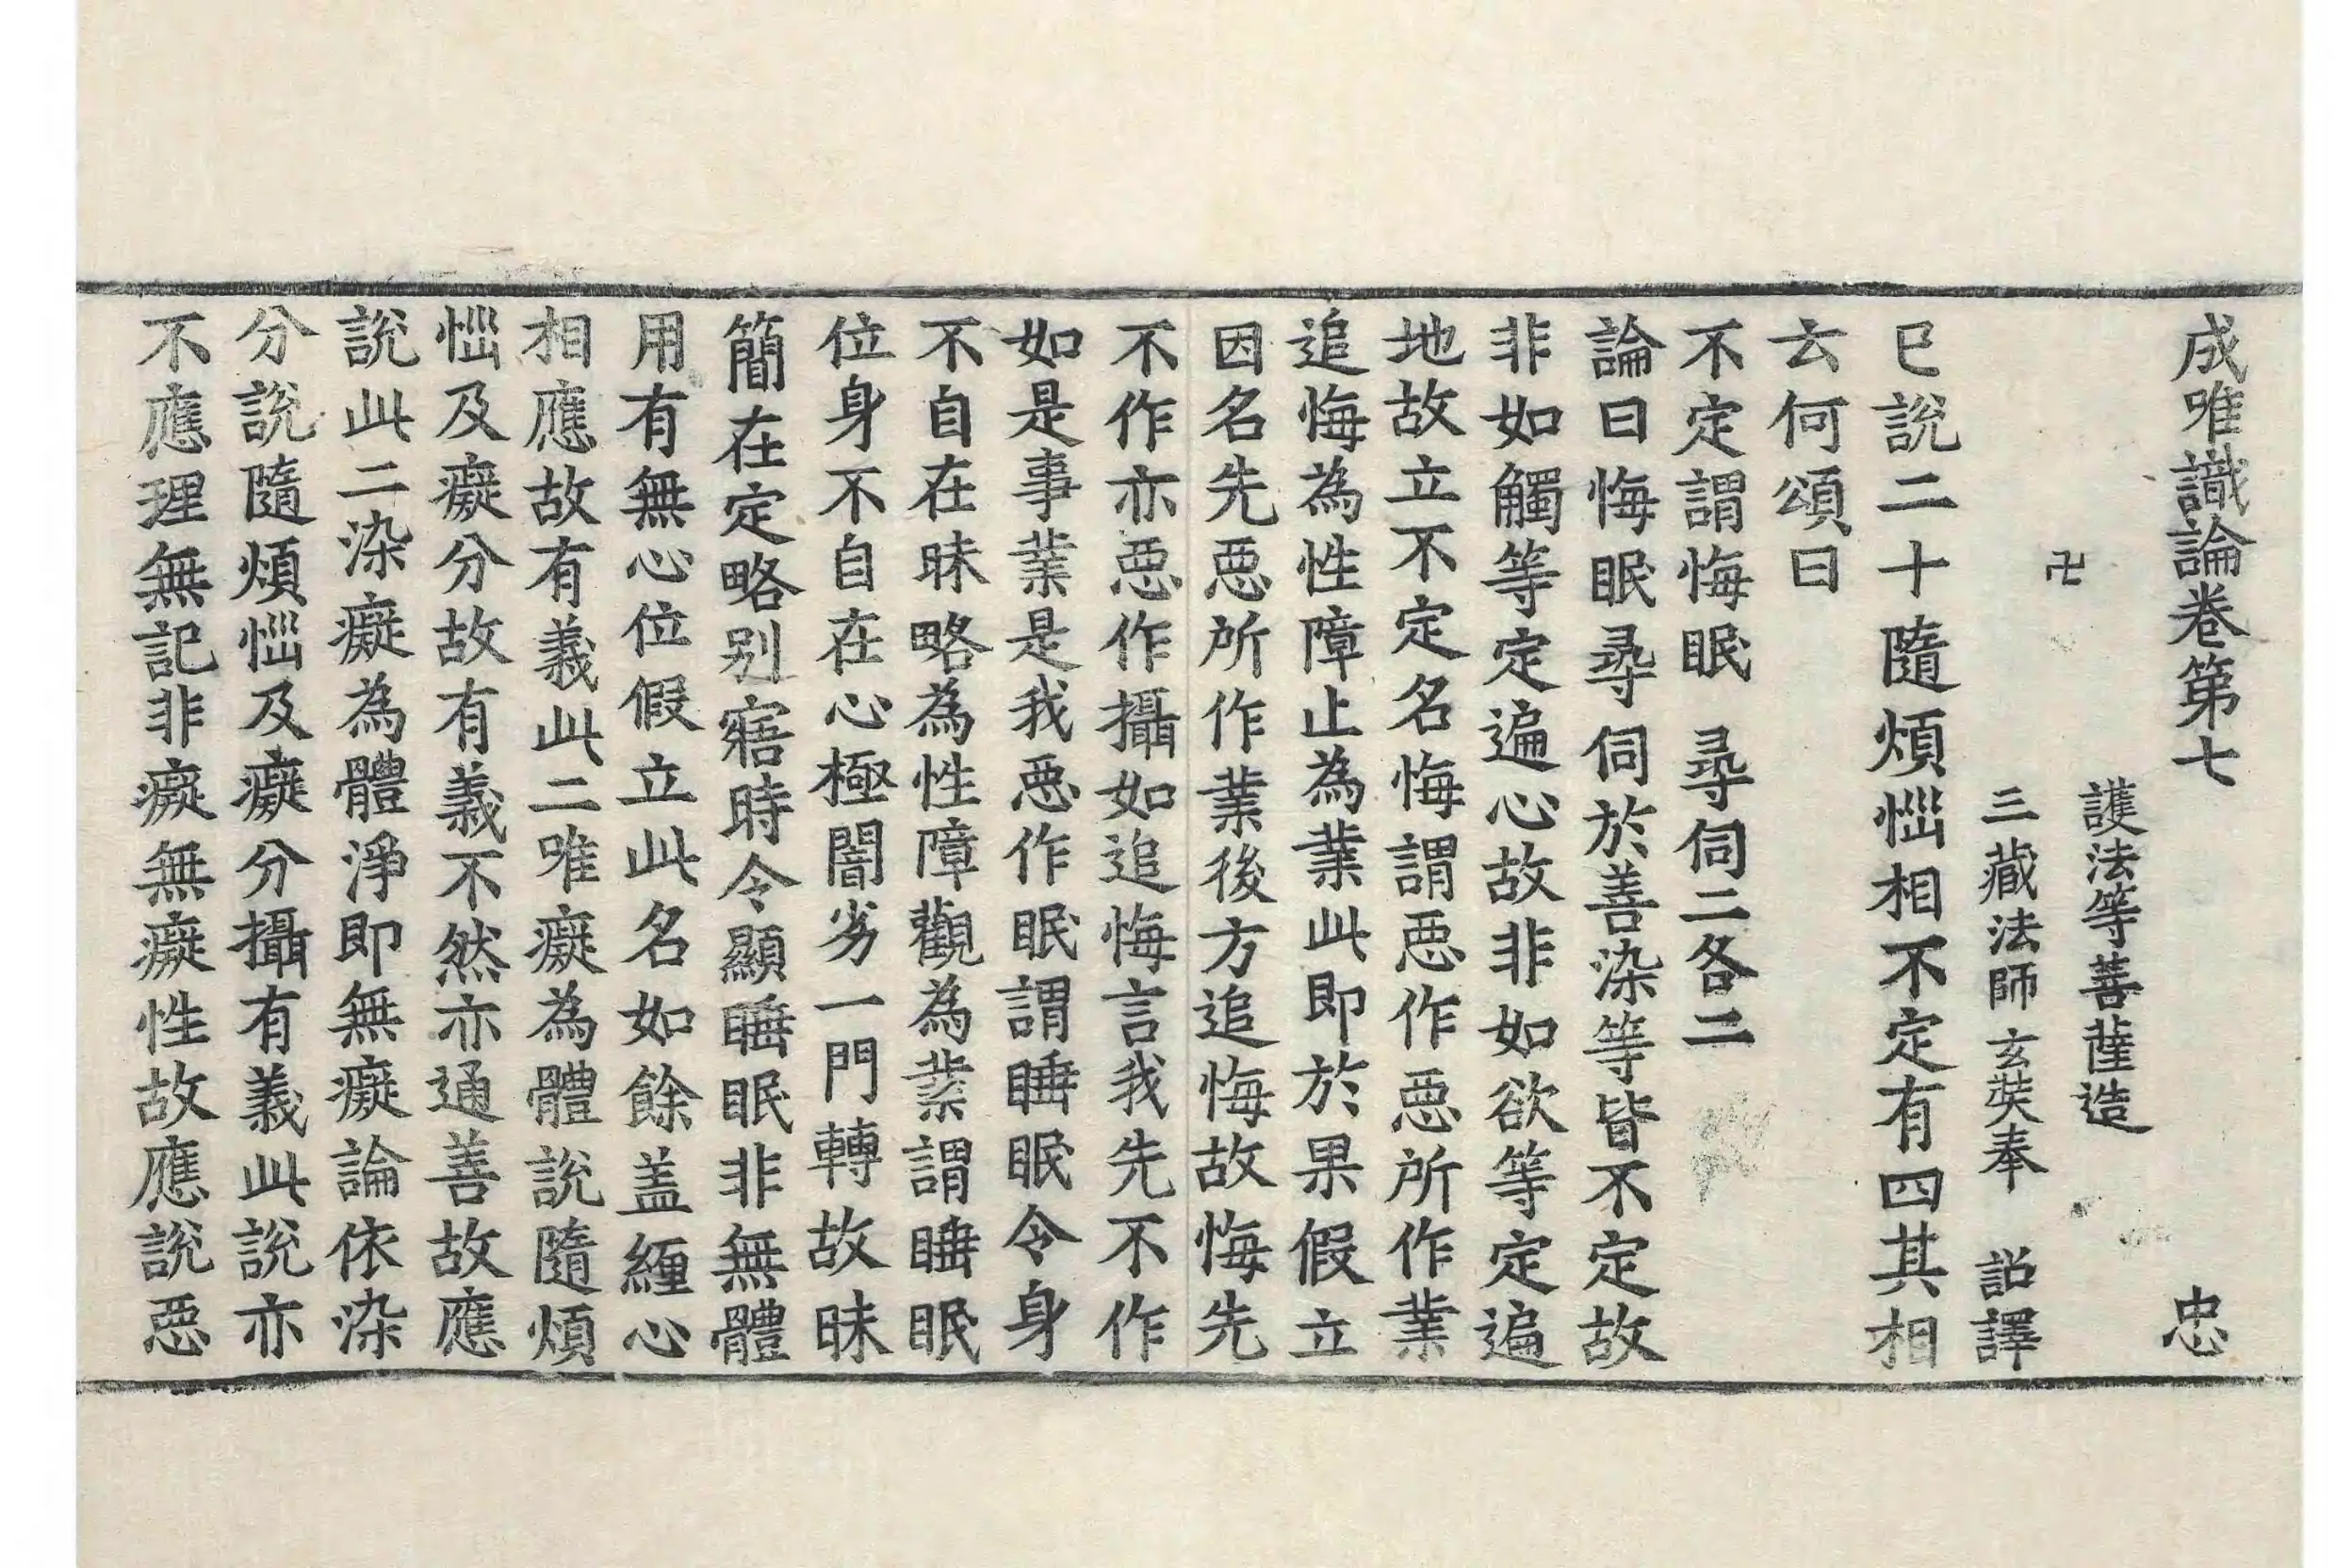 成唯識論卷第七 忠
護法等菩薩造
卍
三藏法師玄奘奉 詔譯
已說二十隨煩惱相不定有四其相
云何頌曰
不定謂悔眠 尋伺二各二
論曰悔眠尋伺於善染等皆不定故
非如觸等定遍心故非如欲等定遍
地故立不定名悔謂惡作惡所作業
追悔為性障止為業此即於果假立
因名先惡所作業後方追悔故悔先
不作亦惡作攝如追悔言我先不作
如是事業是我惡作眠謂睡眠令身
不自在昧略為性障觀為業謂睡眠
位身不自在心極闇劣一門轉故昧
簡在定略別寤時令顯睡眠非無體
用有無心位假立此名如餘盖纏心
相應故有義此二唯癡為體說隨煩
惱及癡分故有義不然亦通善故應
說此二染癡為體淨即無癡論依染
分說隨煩惱及癡分攝有義此說亦
不應理無記非癡無癡性故應說惡